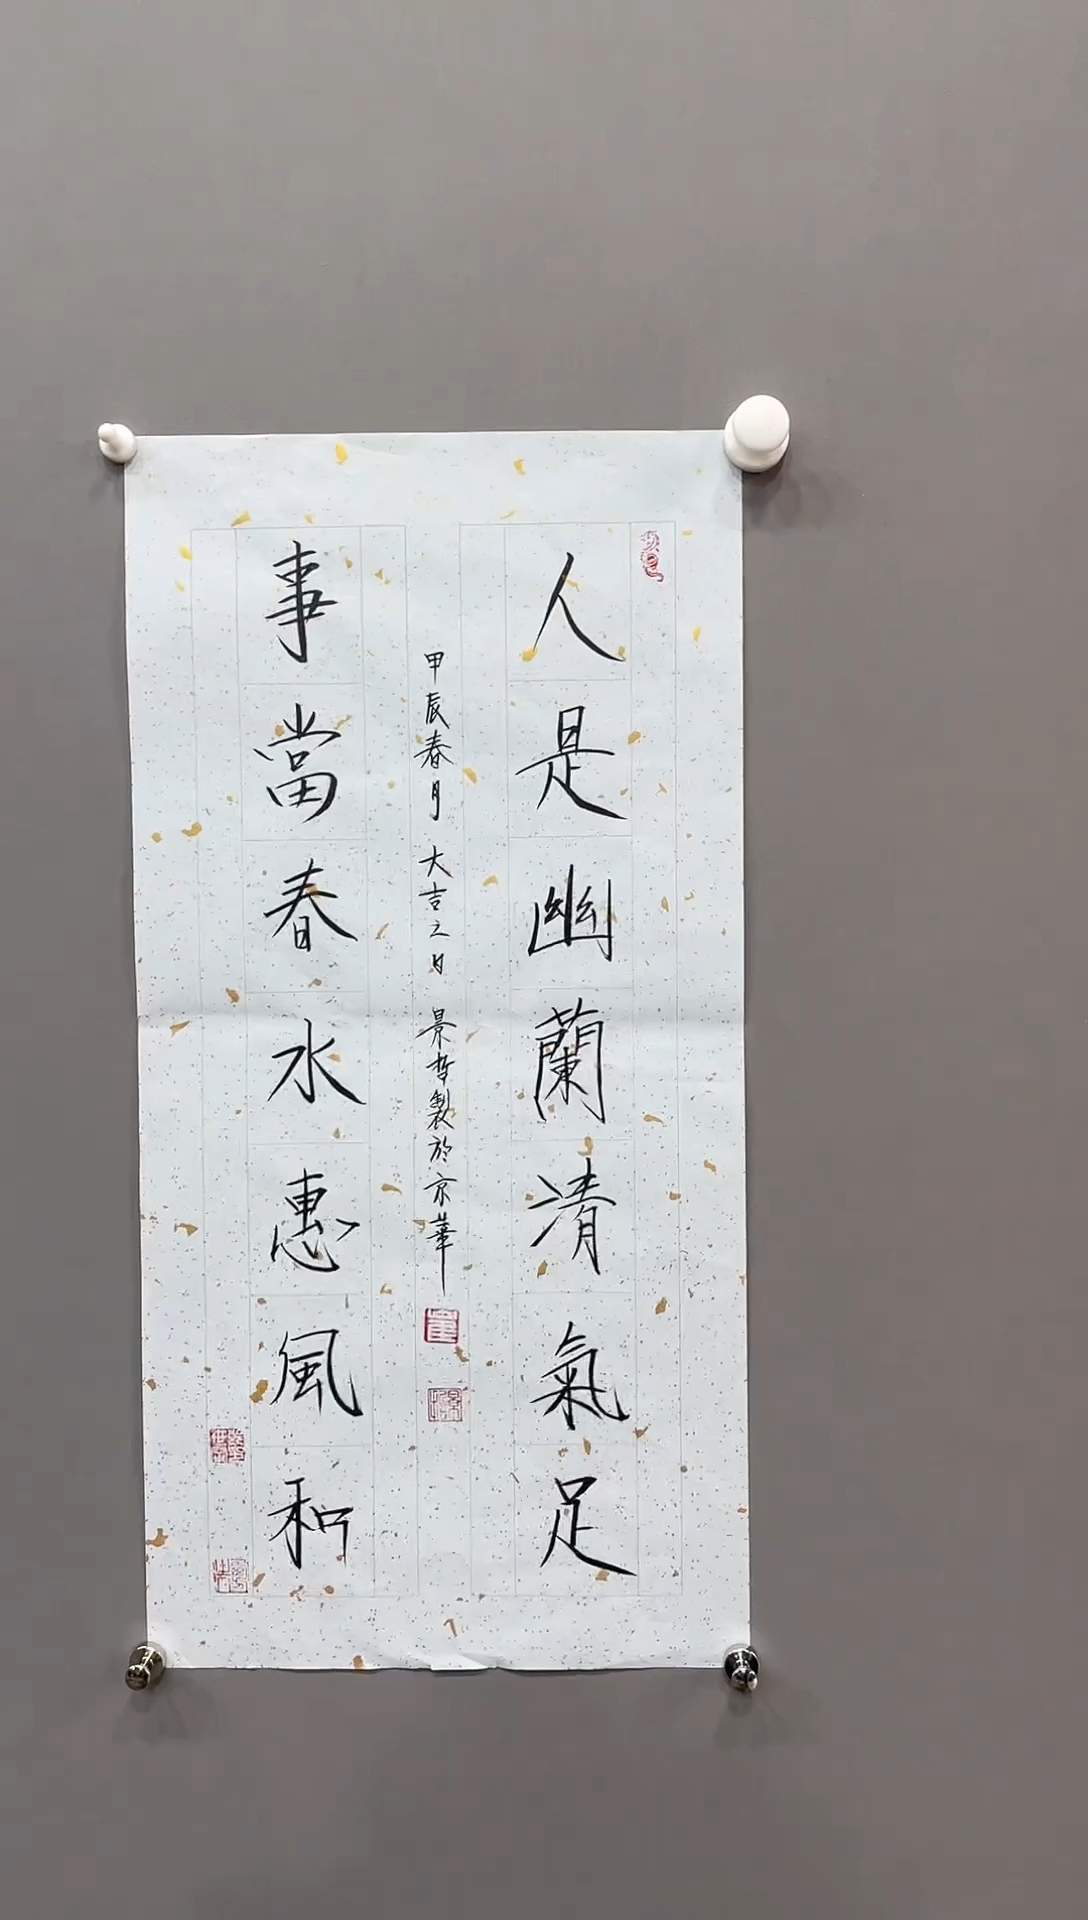 人是幽蘭清氣足
甲辰春月 大吉之日 景哲製於京華
事當春水惠風和